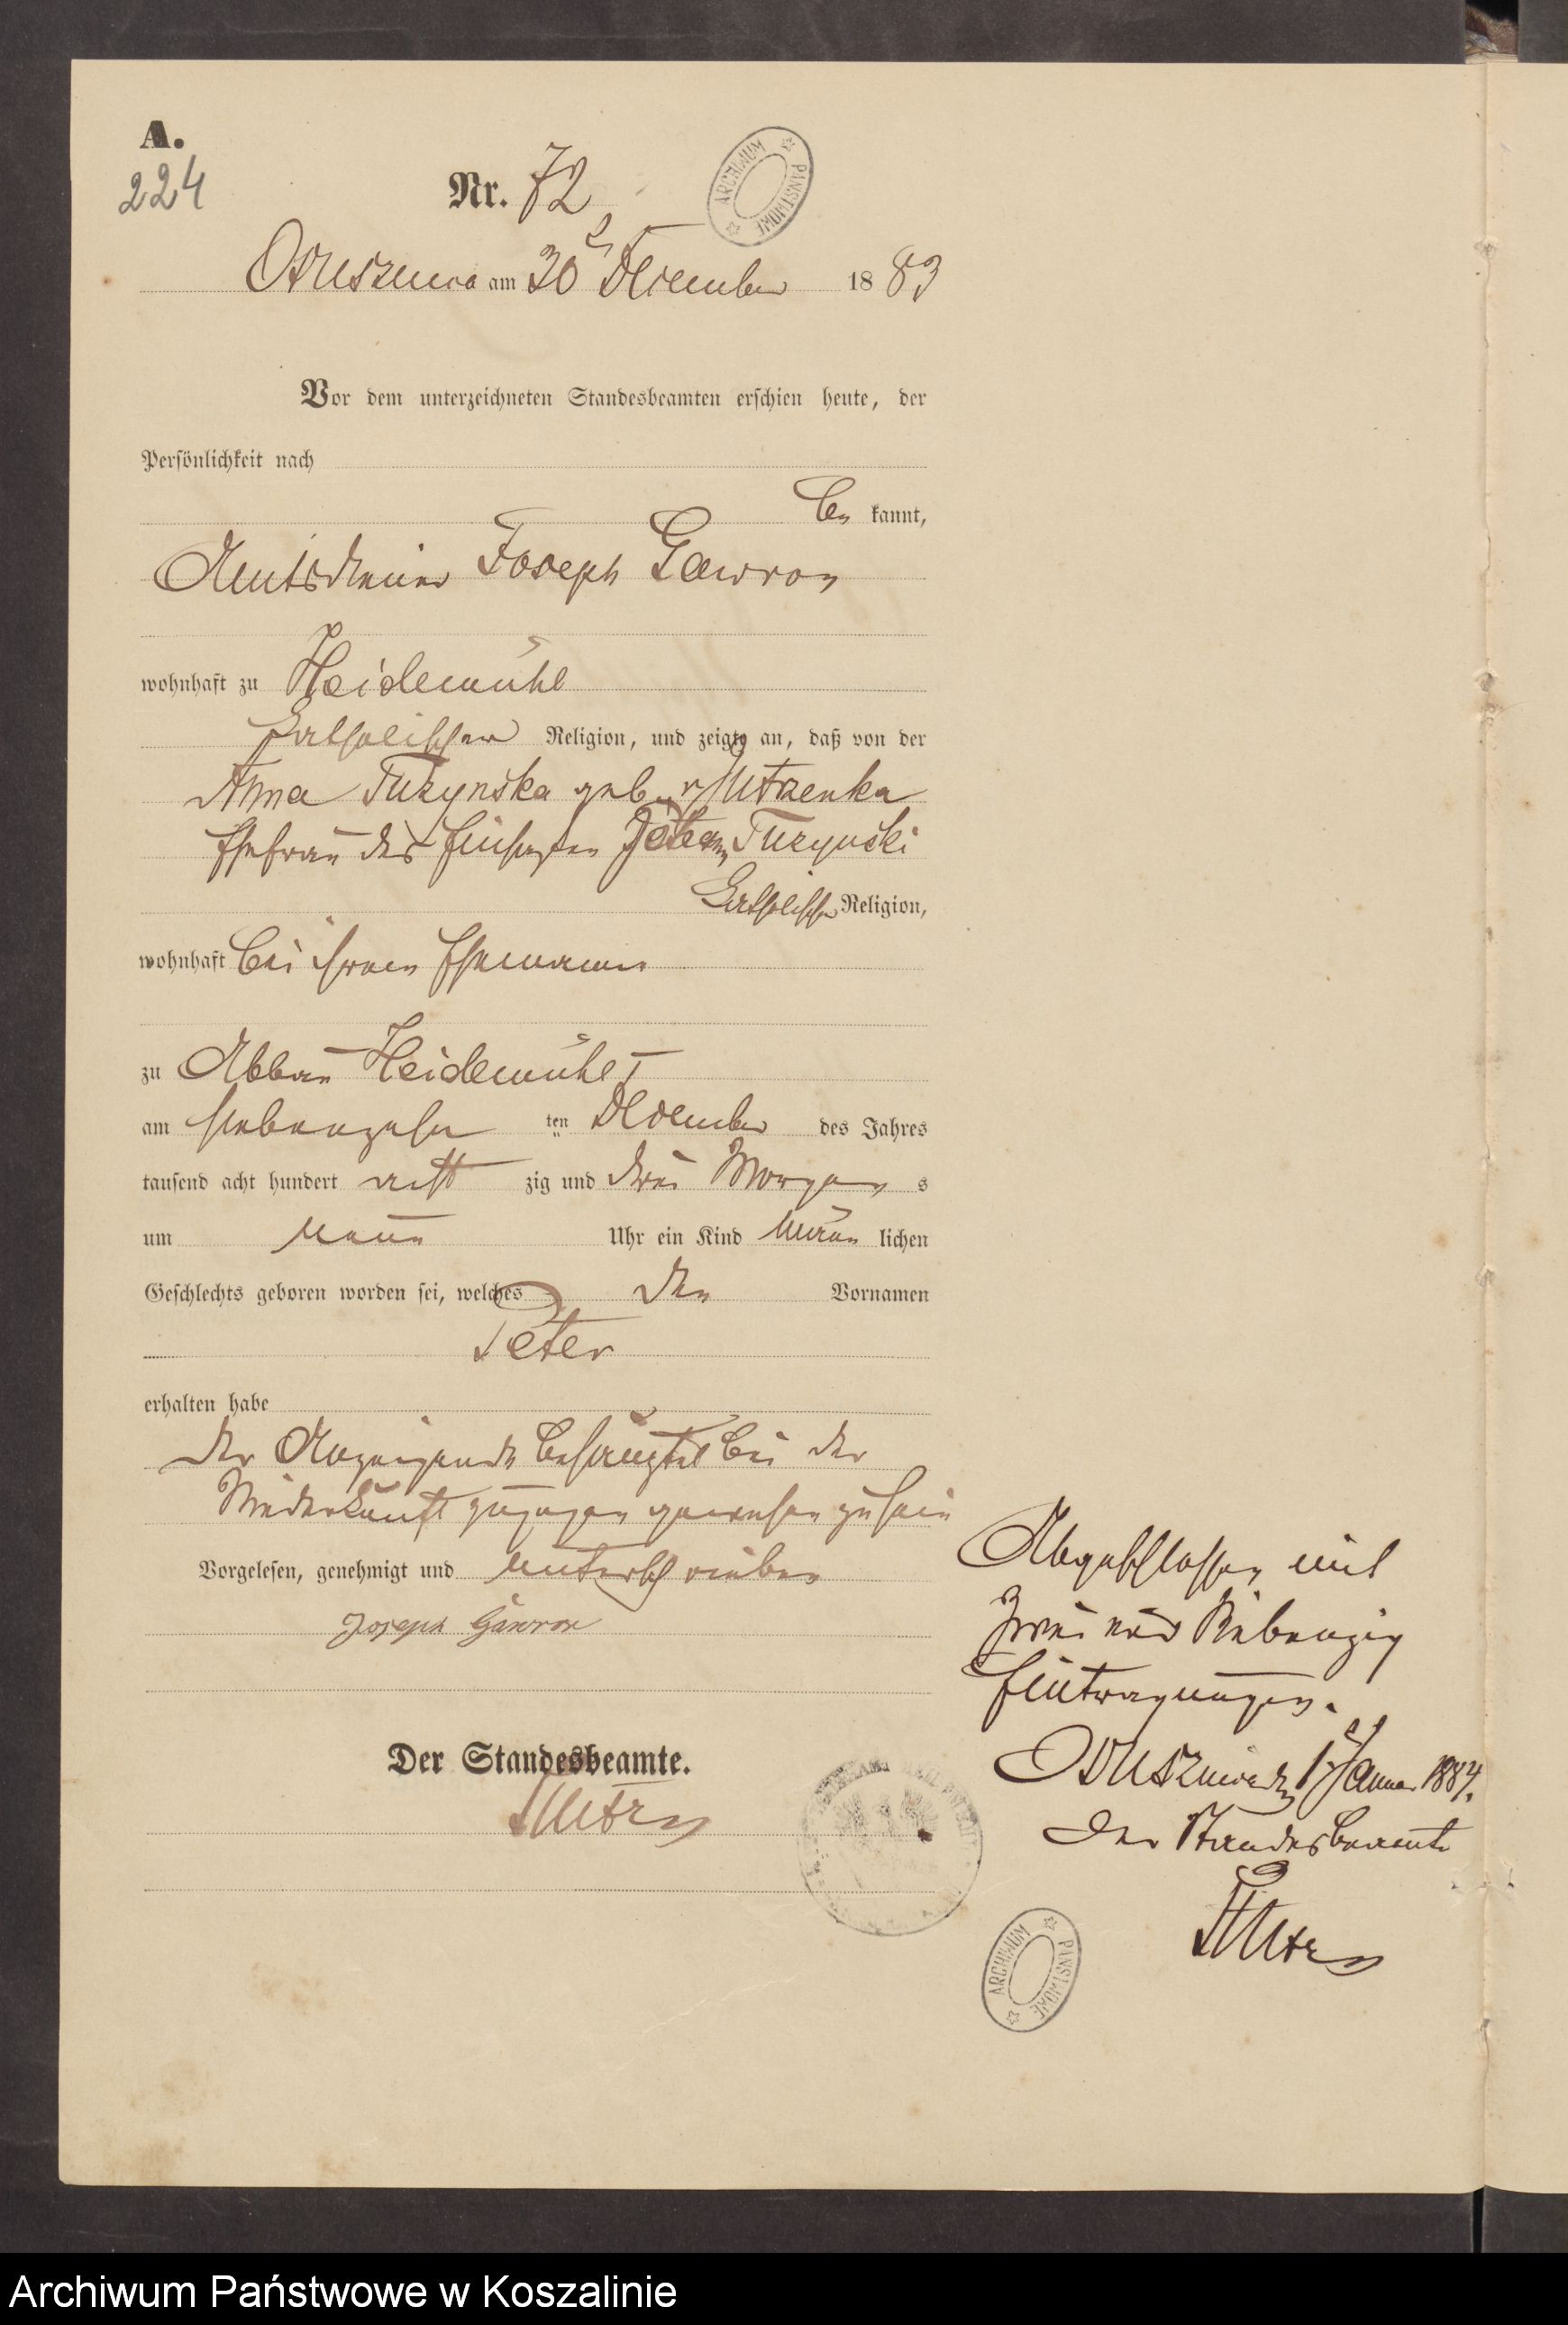 A.
224
Nr. 72
ARCHIWUM PAŃSTWOWE
am 30 December 1883
Vor dem unterzeichneten Standesbeamten erschien heute, der
Persönlichkeit nach
be kannt,
Amtsdiener Joseph Gawron
wohnhaft zu Heidemühl
katholischer Religion, und zeigte an, daß von der
Anna Turzynska geb.
Ehefrau des Einsassen Turzynski
katholischer Religion,
wohnhaft bei ihrem Ehemann
zu Abbau Heidemühl
am siebenzehn ten December des Jahres
tausend acht hundert acht zig und drei Morgens
um neun Uhr ein Kind männ lichen
Geschlechts geboren worden sei, welches den Vornamen
Peter
erhalten habe
der Anzeigende behauptet bei der
Niederkunft zugegen gewesen zu sein
Vorgelesen, genehmigt und unterschrieben
Joseph Gawron
Der Standesbeamte.
Abgeschlossen mit
zwei und siebenzig
Eintragungen.
1 Januar 1884.
Der Standesbeamte
ARCHIWUM PAŃSTWOWE
Archiwum Państwowe w Koszalinie